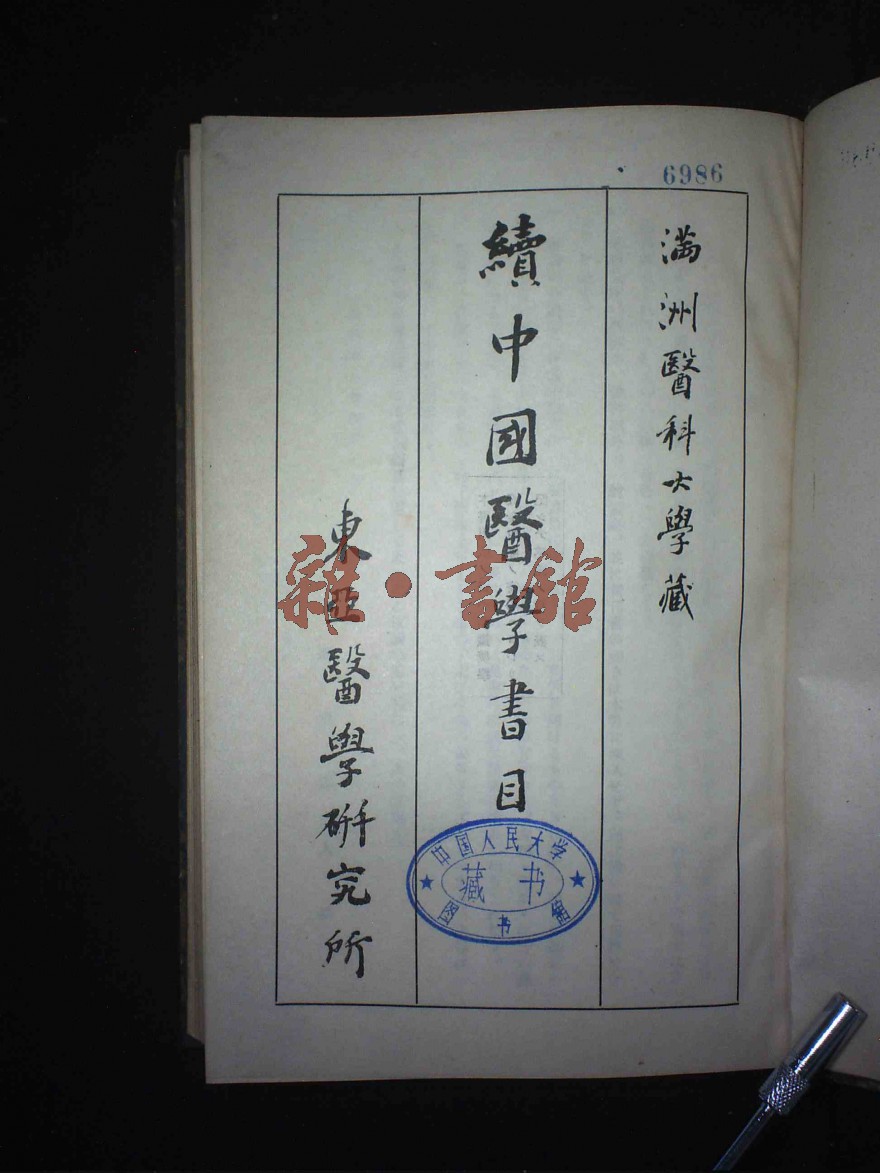 6986
满洲醫科大學藏
續中國醫學書目
東亞醫學研究所
雜·書館
中国人民大学
藏书
图书馆